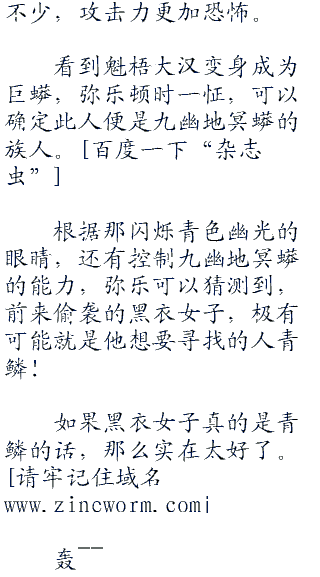 不少，攻击力更加恐怖。
看到魁梧大汉变身成为
巨蟒，弥乐顿时一怔，可以
确定此人便是九幽地冥蟒的
族人。[百度一下“杂志
虫”]
根据那闪烁青色幽光的
眼睛，还有控制九幽地冥蟒
的能力，弥乐可以猜测到，
前来偷袭的黑衣女子，极有
可能就是他想要寻找的人青
鳞！
如果黑衣女子真的是青
鳞的话，那么实在太好了。
[请牢记住域名
www.zincworm.com]
轰——